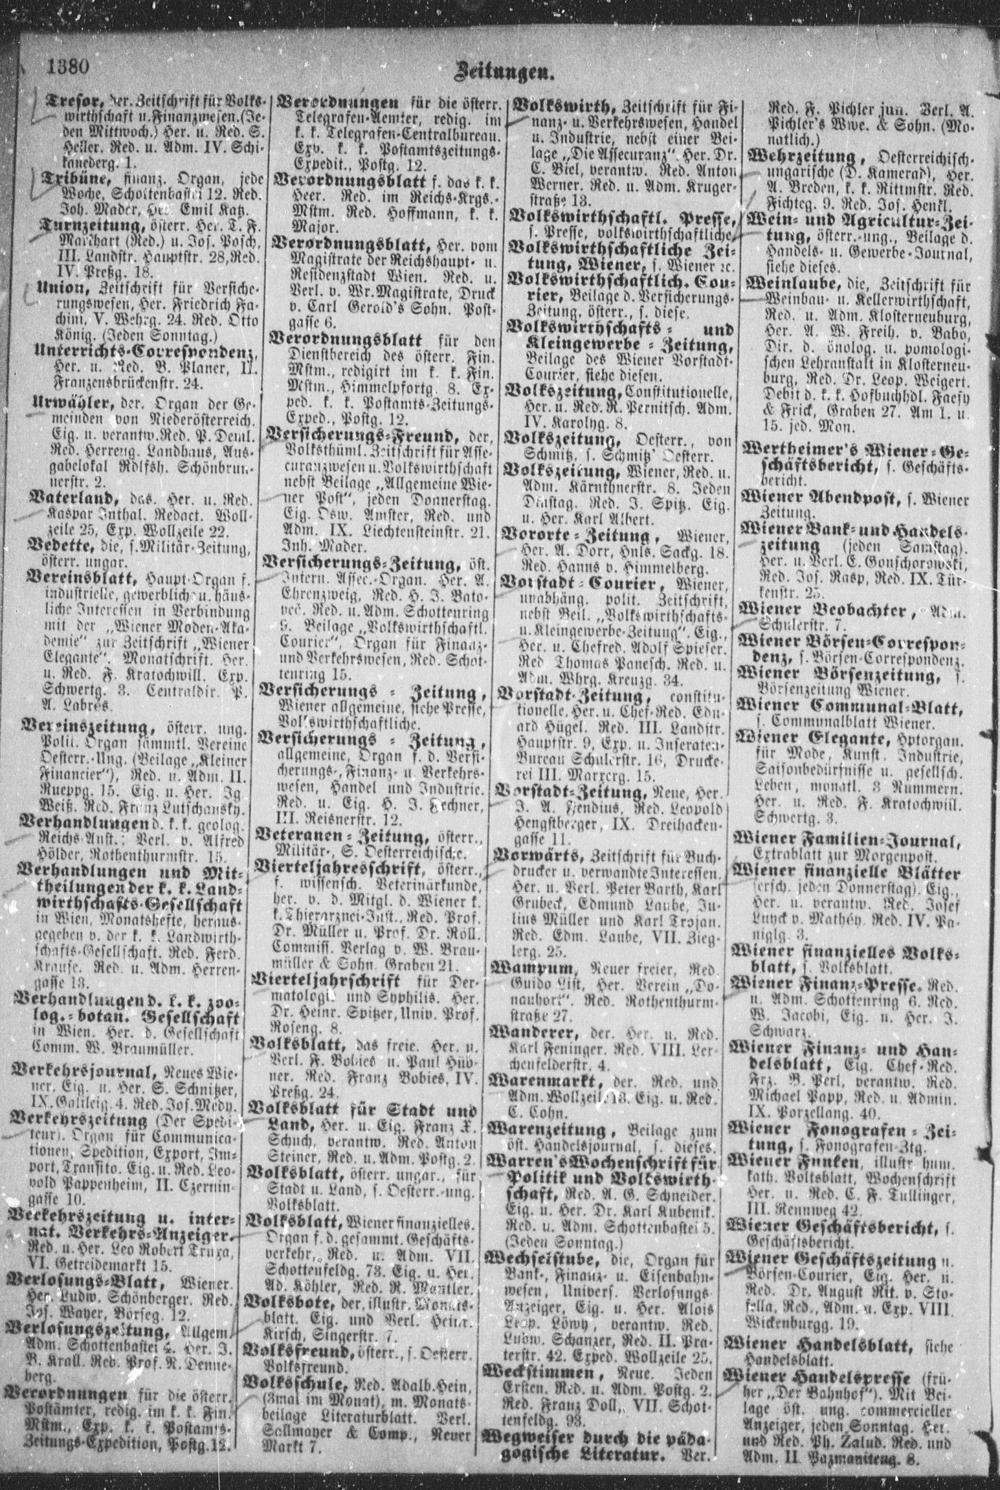 1380
Zeitungen.
Tresor, der. Zeitschrift für Volks-
wirthschaft u. Finanzwesen. (Je-
den Mittwoch.) Her. u. Red. S.
Heller. Red. u. Adm. IV. Schi-
kanederg. 1.
Tribüne, finanz. Organ, jede
Woche, Schottenbastei 12. Red.
Joh. Mader, Her. Emil Katz.
Turnzeitung, österr. Her. T. F.
Marchart (Red.) u. Jos. Pösch,
III. Landstr. Hauptstr. 28, Red.
IV. Preßg. 18.
Union, Zeitschrift für Versiche-
rungswesen, Her. Friedrich Fa-
chini, V. Wehrg. 24. Red. Otto
König. (Jeden Sonntag.)
Unterrichts-Correspondenz,
Her. u. Red. B. Planer, II.
Franzensbrückenstr. 24.
Urwähler, der. Organ der Ge-
meinden von Niederösterreich.
Eig. u. verantw. Red. P. Deutl.
Red. Herreng. Landhaus, Aus-
gabelokal Rdlfsh. Schönbrun-
nerstr. 2.
Vaterland, das. Her. u. Red.
Kaspar Inthal. Redact. Woll-
zeile 25, Exp. Wollzeile 22.
Vedette, die, s. Militär-Zeitung,
österr. ungar.
Vereinsblatt, Haupt-Organ f.
industrielle, gewerblich u. häus-
liche Interessen in Verbindung
mit der „Wiener Moden-Aka-
demie“ zur Zeitschrift „Wiener
Elegante“. Monatschrift. Her.
u. Red. F. Kratochwill. Exp.
Schwertg. 3. Centraldir. P.
A. Labrés.
Vereinszeitung, österr. ung.
Polit. Organ sämmtl. Vereine
Oesterr.-Ung. (Beilage „Kleiner
Financier“), Red. u. Adm. II.
Rueppg. 15. Eig. u. Her. Ig.
Weiß. Red. Franz Lutschansky.
Verhandlungen d. k. k. geolog.
Reichs-Anst.: Verl. v. Alfred
Hölder, Rothenthurmstr. 15.
Verhandlungen und Mit-
theilungen der k. k. Land-
wirthschafts-Gesellschaft
in Wien, Monatshefte, heraus-
gegeben v. der k. k. Landwirth-
schafts-Gesellschaft. Red. Ferd.
Krause. Red. u. Adm. Herren-
gasse 13.
Verhandlungen d. k. k. zoo-
log.-botan. Gesellschaft
in Wien. Her. d. Gesellschaft
Comm. W. Braumüller.
Verkehrsjournal, Neues Wie-
ner. Eig. u. Her. S. Schnitzer,
IX. Galileig. 4. Red. Jos. Medy.
Verkehrszeitung (Der Spedi-
teur). Organ für Communica-
tionen, Spedition, Export, Im-
port, Transito. Eig. u. Red. Leo-
pold Pappenheim, II. Czernin-
gasse 10.
Verkehrszeitung u. inter-
nat. Verkehrs-Anzeiger.
Red. u. Her. Leo Robert Truxa,
VI. Getreidemarkt 15.
Verlosungs-Blatt, Wiener.
Her. Ludw. Schönberger. Red.
Jos. Wayer, Börseg. 12.
Verlosungszeitung, Allgem.
Adm. Schottenbastei 4. Her. J.
B. Krall. Red. Prof. R. Denne-
berg.
Verordnungen für die österr.
Postämter, redig. im k. k. Fin.
Mstm., Exp. k. k. Postamts-
Zeitungs-Expedition, Postg. 12.
Verordnungen für die österr.
Telegrafen-Aemter, redig. im
k. k. Telegrafen-Centralbureau.
Exp. k. k. Postamtszeitungs-
Expedit., Postg. 12.
Verordnungsblatt f. das k. k.
Heer. Red. im Reichs-Krgs.-
Mstm. Red. Hoffmann, k. k.
Major.
Verordnungsblatt, Her. vom
Magistrate der Reichshaupt- u.
Residenzstadt Wien. Red. u.
Verl. v. Wr. Magistrate, Druck
v. Carl Gerold's Sohn. Post-
gasse 6.
Verordnungsblatt für den
Dienstbereich des österr. Fin.
Mstm., redigirt im k. k. Fin.
Mstm., Himmelpfortg. 8. Ex-
ped. k. k. Postamts-Zeitungs-
Exped., Postg. 12.
Versicherungs-Freund, der,
Volksthüml. Zeitschrift für Asse-
curanzwesen u. Volkswirthschaft
nebst Beilage „Allgemeine Wie-
ner Post“, jeden Donnerstag.
Eig. Osw. Amster, Red. und
Adm. IX. Liechtensteinstr. 21.
Inh. Mader.
Versicherungs-Zeitung, öst.
Intern. Assec.-Organ. Her. A.
Ehrenzweig, Red. H. J. Bato-
vec. Red. u. Adm. Schottenring
5. Beilage „Volkswirthschaftl.
Courier“, Organ für Finanz-
und Verkehrswesen, Red. Schot-
tenring 15.
Versicherungs-Zeitung,
Wiener allgemeine, siehe Presse,
Volkswirthschaftliche.
Versicherungs-Zeitung,
allgemeine, Organ f. d. Versi-
cherungs-, Finanz- u. Verkehrs-
wesen, Handel und Industrie.
Red. u. Eig. H. J. Lechner,
III. Reisnerstr. 12.
Veteranen-Zeitung, österr.,
Militär-, S. Oesterreichische.
Vierteljahresschrift, österr.,
f. wissensch. Veterinärkunde,
her. v. d. Mitgl. d. Wiener k.
k. Thierarznei-Inst., Red. Prof.
Dr. Müller u. Prof. Dr. Röll.
Commiss. Verlag v. W. Brau-
müller & Sohn. Graben 21.
Vierteljahrschrift für Der-
matologi und Syphilis. Her.
Dr. Heinr. Spitzer, Univ. Prof.
Roseng. 8.
Volksblatt, das freie. Her. u.
Verl. F. Bobies u. Paul Hüb-
ner. Red. Franz Bobies, IV.
Preßg. 24.
Volksblatt für Stadt und
Land, Her. u. Eig. Franz X.
Schuch, verantw. Red. Anton
Steiner, Red. u. Adm. Postg. 2.
Volksblatt, österr. ungar., für
Stadt u. Land, s. Oesterr.-ung.
Volksblatt.
Volksblatt, Wiener finanzielles.
Organ f. d. gesammt. Geschäfts-
verkehr, Red. u. Adm. VII.
Schottenfeldg. 73. Eig. u. Her.
Ad. Köhler, Red. R. Mantler.
Volksbote, der, illustr. Monats-
blatt. Eig. und Verl. Heinr.
Kirsch, Singerstr. 7.
Volksfreund, österr., s. Oesterr.
Volksfreund.
Volksschule, Red. Adalb. Hein,
(3mal im Monat), m. Monats-
beilage Literaturblatt. Verl.
Sallmayer & Comp., Neuer
Markt 7.
Volkswirth, Zeitschrift für Fi-
nanz- u. Verkehrswesen, Handel
u. Industrie, nebst einer Bei-
lage „Die Assecuranz“. Her. Dr.
C. Biel, verantw. Red. Anton
Werner. Red. u. Adm. Kruger-
straße 13.
Volkswirthschaftl. Presse,
s. Presse, volkswirthschaftliche
Volkswirthschaftliche Zei-
tung, Wiener, s. Wiener ꝛc.
Volkswirthschaftlich. Cou-
rier, Beilage d. Versicherungs-
Zeitung, österr., s. diese.
Volkswirthschafts- und
Kleingewerbe-Zeitung,
Beilage des Wiener Vorstadt-
Courier, siehe diesen.
Volkszeitung, Constitutionelle,
Her. u. Red. R. Pernitsch, Adm.
IV. Karolyg. 8.
Volkszeitung, Oesterr., von
Schmitz, s. Schmitz' Oesterr.
Volkszeitung, Wiener, Red. u.
Adm. Kärnthnerstr. 8. Jeden
Dinstag. Red. J. Spitz. Eig.
u. Her. Karl Albert.
Vororte-Zeitung, Wiener,
Her. A. Dorr, Hnls. Sackg. 18.
Red. Hanns v. Himmelberg.
Vorstadt-Courier, Wiener,
unabhäng. polit. Zeitschrift,
nebst Beil. „Volkswirthschafts-
u. Kleingewerbe-Zeitung“. Eig.,
Her. u. Chefred. Adolf Spieser.
Red Thomas Panesch. Red. u.
Adm. Whrg. Kreuzg. 34.
Vorstadt-Zeitung, constitu-
tionelle. Her. u. Chef-Red. Edu-
ard Hügel. Red. III. Landstr.
Hauptstr. 9, Exp. u. Inseraten-
Bureau Schulerstr. 16, Drucke-
rei III. Marxerg. 15.
Vorstadt-Zeitung, Neue, Her.
J. A. Red. Leopold
Hengstberger, IX. Dreihacken-
gasse 11.
Vorwärts, Zeitschrift für Buch-
drucker u. verwandte Interessen.
Her. u. Verl. Peter Barth, Karl
Grubeck, Edmund Laube, Ju-
lius Müller und Karl Trojan.
Red. Edm. Laube, VII. Zieg-
lerg. 25.
Wampum, Neuer freier, Red.
Guido List, Her. Verein „Do-
nauhort“. Red. Rothenthurm-
straße 27.
Wanderer, der. Her. u. Red.
Karl Feninger. Red. VIII. Ler-
chenfelderstr. 4.
Warenmarkt, der. Red. und
Adm. Wollzeile 13. Eig. u. Red.
C. Cohn.
Warenzeitung, Beilage zum
öst. Handelsjournal, s. dieses.
Warren's Wochenschrift für
Politik und Volkswirth-
schaft, Red. A. G. Schneider.
Eig. u. Her. Dr. Karl Kubenik.
Red. u. Adm. Schottenbastei 5.
(Jeden Sonntag.)
Wechselstube, die, Organ für
Bank-, Finanz- u. Eisenbahn-
wesen, Univers. Verlosungs-
Anzeiger, Eig. u. Her. Alois
Leop. Löwy, verantw. Red.
Ludw. Schanzer, Red. II. Pra-
terstr. 42. Exped. Wollzeile 25.
Weckstimmen, Neue. Jeden
Ersten. Red. u. Adm. Postg. 2.
Red. Franz Doll, VII. Schot-
tenfeldg. 93.
Wegweiser durch die päda-
gogische Literatur. Ver.
Red. F. Pichler jun. Verl. A.
Pichler's Wwe. & Sohn. (Mo-
natlich.)
Wehrzeitung, Oesterreichisch-
ungarische (D. Kamerad), Her.
A. Breden, k. k. Rittmstr. Red.
Fichteg. 9. Red. Jos. Henkl.
Wein- und Agricultur-Zei-
tung, österr.-ung., Beilage d.
Handels- u. Gewerbe-Journal,
siehe dieses.
Weinlaube, die, Zeitschrift für
Weinbau- u. Kellerwirthschaft,
Red. u. Adm. Klosterneuburg,
Her. A. W. Freih. v. Babo,
Dir. d. önolog. u. pomologi-
schen Lehranstalt in Klosterneu-
burg, Red. Dr. Leop. Weigert.
Debit d. k. k. Hofbuchhdl. Faesy
& Frick, Graben 27. Am 1. u.
15. jed. Mon.
Wertheimer's Wiener-Ge-
schäftsbericht, s. Geschäfts-
bericht.
Wiener Abendpost, s. Wiener
Zeitung.
Wiener Bank- und Handels-
zeitung (jeden Samstag).
Her. u. Verl. C. Gonschorowski,
Red. Jos. Rasp, Red. IX. Tür-
kenstr. 25.
Wiener Beobachter, Adm.
Schulerstr. 7.
Wiener Börsen-Correspon-
denz, s. Börsen-Correspondenz.
Wiener Börsenzeitung, s.
Börsenzeitung Wiener.
Wiener Communal-Blatt,
s. Communalblatt Wiener.
Wiener Elegante, Hptorgan.
für Mode, Kunst, Industrie,
Saisonbedürfnisse u. gesellsch.
Leben, monatl. 3 Nummern.
Her. u. Red. F. Kratochwill.
Schwertg. 3.
Wiener Familien-Journal,
Extrablatt zur Morgenpost.
Wiener finanzielle Blätter
(ersch. jeden Donnerstag). Eig.,
Her. u. verantw. Red. Josef
Luyck v. Mathéy. Red. IV. Pa-
niglg. 3.
Wiener finanzielles Volks-
blatt, s. Volksblatt.
Wiener Finanz-Presse. Red.
u. Adm. Schottenring 6. Red.
W. Jacobi, Eig. u. Her. J.
Schwarz.
Wiener Finanz- und Han-
delsblatt, Eig. Chef-Red.
Frz. B. Perl, verantw. Red.
Michael Papp, Red. u. Admin.
IX. Porzellang. 40.
Wiener Fonografen-Zei-
tung, s. Fonografen-Ztg.
Wiener Funken, illustr. hum.
kath. Volksblatt, Wochenschrift
Her. u. Red. C. F. Tullinger,
III. Rennweg 42.
Wiener Geschäftsbericht, s.
Geschäftsbericht.
Wiener Geschäftszeitung u.
Börsen-Courier, Eig. Her. u.
Red. Dr. August Rit. v. Sto-
fella, Red., Adm. u. Exp. VIII.
Wickenburgg. 19.
Wiener Handelsblatt, siehe
Handelsblatt.
Wiener Handelspresse (frü-
her „Der Bahnhof“). Mit Bei-
lage öst. ung. commercieller
Anzeiger, jeden Sonntag. Her.
und Red. Ph. Zalud. Red. und
Adm. II Pazmaniteng. 8.